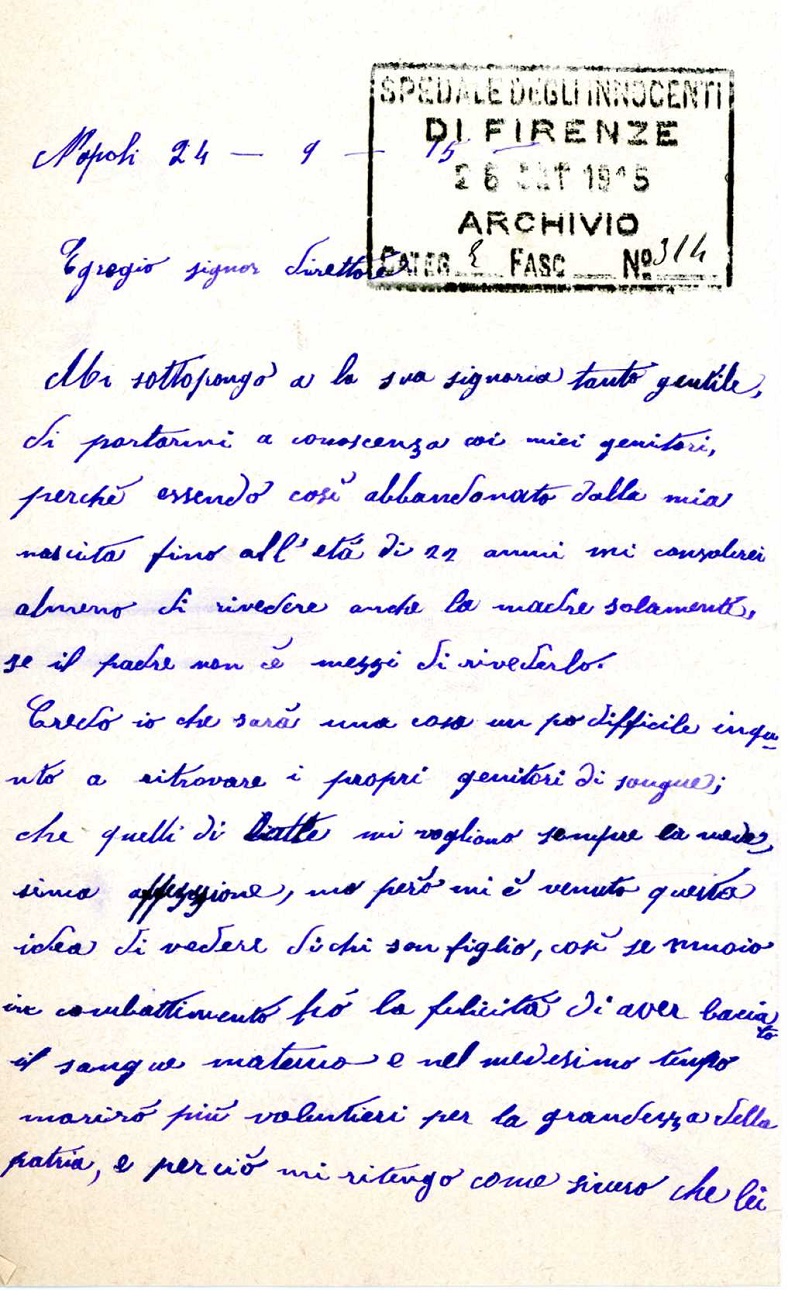 SPEDALE DEGLI INNOCENTI
DI FIRENZE
26 SET 1915
ARCHIVIO
CATEG. FASC Nº 314
Napoli 24 — 9 — 15 —
Egregio signor direttore
Mi sottopongo a la sua signoria tanto gentile,
di portarmi a conoscenza coi miei genitori,
perché essendo cosí abbandonato dalla mia
nascita fino all'etá di 22 anni mi consolerei
almeno di rivedere anche la madre solamente,
se il padre non cé mezzi di rivederlo.
Credo io che sará una cosa un po difficile inqua
nto a ritrovare i propri genitori di sangue;
che quelli di latte mi vogliono sempre la mede,
sima affezzione, ma peró mi é venuto questa
idea di vedere di chi son figlio, cosí se muoio
in combattimento hó la felicitá di aver bacia
to
il sangue materno e nel medesimo tempo
moriró piú voluntieri per la grandezza della
patria, e perció mi ritengo come sicuro che lei